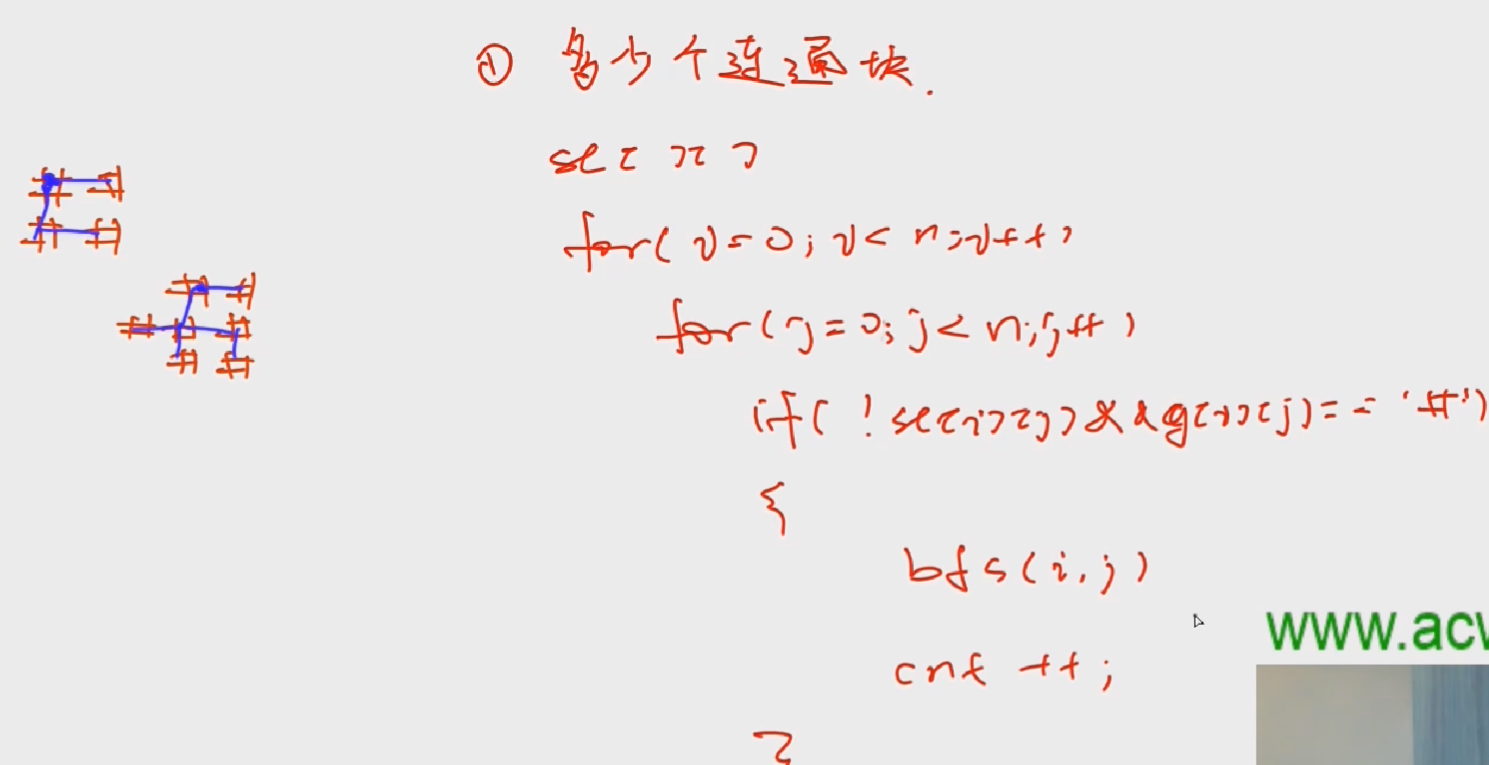 ① 多少个连通块.
st[][]
for(i=0;i<n;i++)
for(j=0;j<n;j++)
if(!st[i][j]&&g[i][j]=='#')
{
bfs(i,j)
cnt++;
}
# #
# #
# #
# # #
# #
www.acw